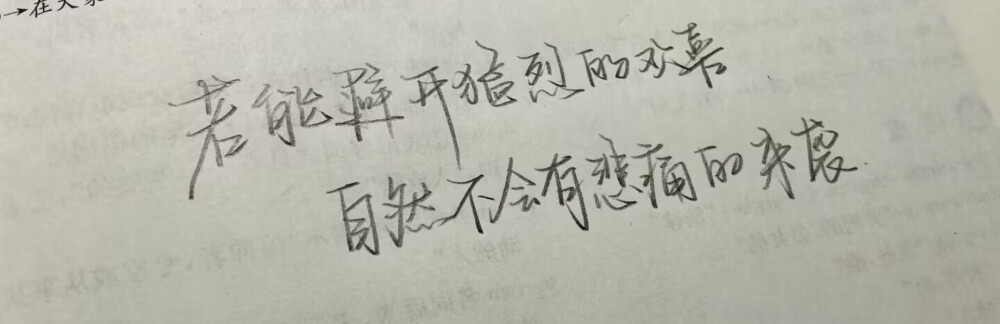 →在大
若能避开猛烈的欢喜
自然不会有悲痛的来袭